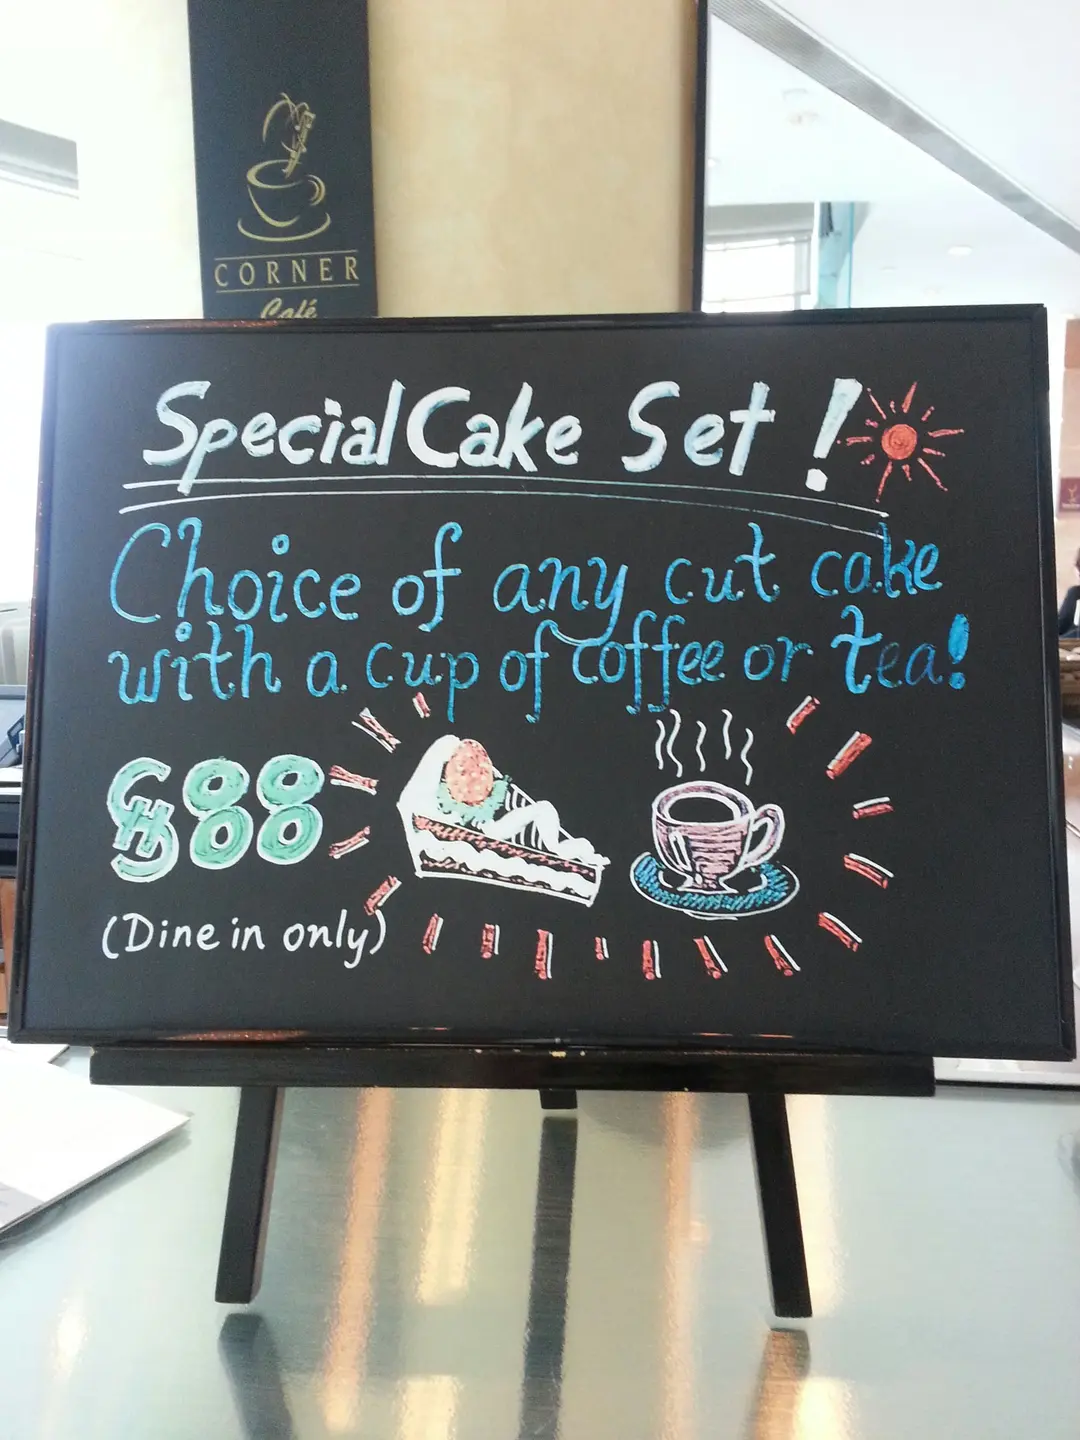 CORNER
Café
Special Cake Set!
Choice of any cut cake
with a cup of coffee or tea!
$88
(Dine in only)